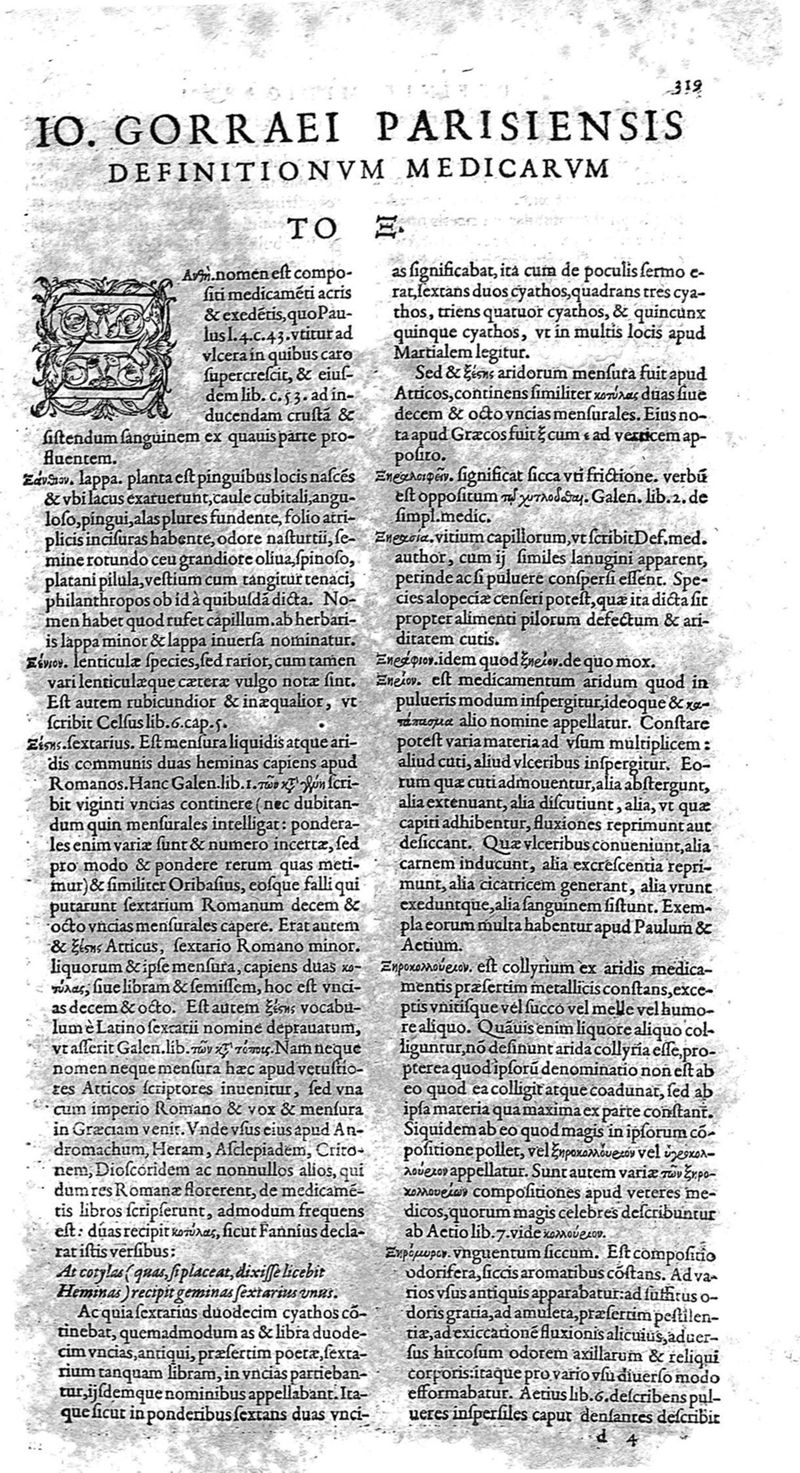 319
IO. GORRAEI PARISIENSIS
DEFINITIONVM MEDICARVM
TO Ξ.
ΞΑνθὴ. nomen est compo-
siti medicamẽti acris
& exedẽtis, quo Pau-
lus l. 4. c. 43. vtitur ad
vlcera in quibus caro
supercrescit, & eius-
dem lib. c. 53. ad in-
ducendam crustã &
sistendum sanguinem ex quauis parte pro-
fluentem.
Ξάνθιον. lappa. planta est pinguibus locis nascẽs
& vbi lacus exaruerunt, caule cubitali, angu-
loso, pingui, alas plures fundente, folio atri-
plicis incisuras habente, odore nasturtii, se-
mine rotundo ceu grandiore oliua, spinoso,
platani pilula, vestium cum tangitur tenaci,
philanthropos ob id à quibusdã dicta. No-
men habet quod rufet capillum. ab herbari-
is lappa minor & lappa inuersa nominatur.
Ξένιον. lenticulæ species, sed rarior, cum tamen
vari lenticulæque cæteræ vulgo notæ sint.
Est autem rubicundior & inæqualior, vt
scribit Celsus lib. 6. cap. 5.
Ξέστης. sextarius. Est mensura liquidis atque ari-
dis communis duas heminas capiens apud
Romanos. Hanc Galen. lib. 1. τῶν κτ̃ γένη scri-
bit viginti vncias continere (nec dubitan-
dum quin mensurales intelligat: pondera-
les enim variæ sunt & numero incertæ, sed
pro modo & pondere rerum quas meti-
mur) & similiter Oribasius, eosque falli qui
putarunt sextarium Romanum decem &
octo vncias mensurales capere. Erat autem
& ξέστης Atticus, sextario Romano minor.
liquorum & ipse mensura, capiens duas κο-
τύλας, siue libram & semissem, hoc est vnci-
as decem & octo. Est autem ξέστης vocabu-
lum è Latino sextarii nomine deprauatum,
vt asserit Galen. lib. τῶν κτ̃ τόπους. Nam neque
nomen neque mensura hæc apud vetustio-
res Atticos scriptores inuenitur, sed vna
cum imperio Romano & vox & mensura
in Græciam venit. Vnde vsus eius apud An-
dromachum, Heram, Asclepiadem, Crito-
nem, Dioscoridem ac nonnullos alios, qui
dum res Romanæ florerent, de medicamẽ-
tis libros scripserunt, admodum frequens
est: duas recipit κοτύλας, sicut Fannius decla-
rat istis versibus:
At cotylas (quas, si placeat, dixisse licebit
Heminas) recipit geminas sextarius vnus.
Ac quia sextarius duodecim cyathos cõ-
tinebat, quemadmodum as & libra duode-
cim vncias, antiqui, præsertim poetæ, sexta-
rium tanquam libram, in vncias partieban-
tur, ijsdemque nominibus appellabant. Ita-
que sicut in ponderibus sextans duas vnci-
as significabat, ita cum de poculis sermo e-
rat, sextans duos cyathos, quadrans tres cya-
thos, triens quatuor cyathos, & quincunx
quinque cyathos, vt in multis locis apud
Martialem legitur.
Sed & ξέστης aridorum mensura fuit apud
Atticos, continens similiter κοτύλας duas siue
decem & octo vncias mensurales. Eius no-
ta apud Græcos fuit ξ cum ε ad verticem ap-
posito.
Ξηραλοιφεῖν. significat sicca vti frictione. verbũ
est oppositum τῷ χυτλοῦσθαι. Galen. lib. 2. de
simpl. medic.
Ξηρασία. vitium capillorum, vt scribit Def. med.
author, cum ij similes lanugini apparent,
perinde ac si puluere conspersi essent. Spe-
cies alopeciæ censeri potest, quæ ita dicta sit
propter alimenti pilorum defectum & ari-
ditatem cutis.
Ξηράφιον. idem quod ξηρίον. de quo mox.
Ξηρίον. est medicamentum aridum quod in
pulueris modum inspergitur, ideoque & κα-
τάπασμα alio nomine appellatur. Constare
potest varia materia ad vsum multiplicem:
aliud cuti, aliud vlceribus inspergitur. Eo-
rum quæ cuti admouentur, alia abstergunt,
alia extenuant, alia discutiunt, alia, vt quæ
capiti adhibentur, fluxiones reprimunt aut
desiccant. Quæ vlceribus conueniunt, alia
carnem inducunt, alia excrescentia repri-
munt, alia cicatricem generant, alia vrunt
exeduntque, alia sanguinem sistunt. Exem-
pla eorum multa habentur apud Paulum &
Aetium.
Ξηροκολλούριον. est collyrium ex aridis medica-
mentis præsertim metallicis constans, exce-
ptis vnitisque vel succo vel melle vel humo-
re aliquo. Quãuis enim liquore aliquo col-
liguntur, nõ desinunt arida collyria esse, pro-
pterea quod ipsorũ denominatio non est ab
eo quod ea colligit atque coadunat, sed ab
ipsa materia qua maxima ex parte constant.
Siquidem ab eo quod magis in ipsorum cõ-
positione pollet, vel ξηροκολλούριον vel ὑγροκολ-
λούριον appellatur. Sunt autem variæ τῶν ξηρο-
κολλουρίων compositiones apud veteres me-
dicos, quorum magis celebres describuntur
ab Aetio lib. 7. vide κολλούριον.
Ξηρόμυρον. vnguentum siccum. Est compositio
odorifera, siccis aromatibus cõstans. Ad va-
rios vsus antiquis apparabatur: ad suffitus o-
doris gratia, ad amuleta, præsertim pestilen-
tiæ, ad exiccationẽ fluxionis alicuius, aduer-
sus hircosum odorem axillarum & reliqui
corporis: itaque pro vario vsu diuerso modo
efformabatur. Aetius lib. 6. describens pul-
ueres inspersiles caput densantes describit
d 4